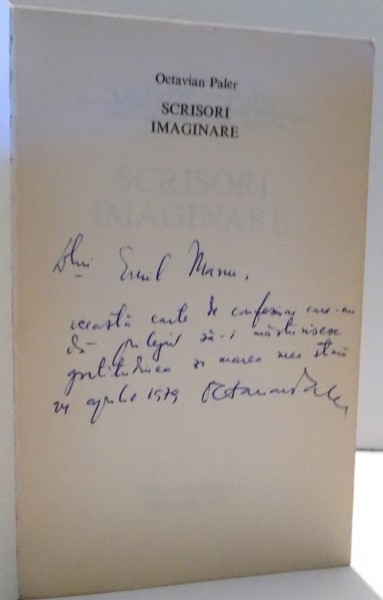 Octavian Paler
SCRISORI
IMAGINARE
Dlui Emil Manu,
această carte de confesiuni care-mi
dă prilejul să-i mărturisesc
gratitudinea și marea mea stimă
24 aprilie 1979 Octavian Paler